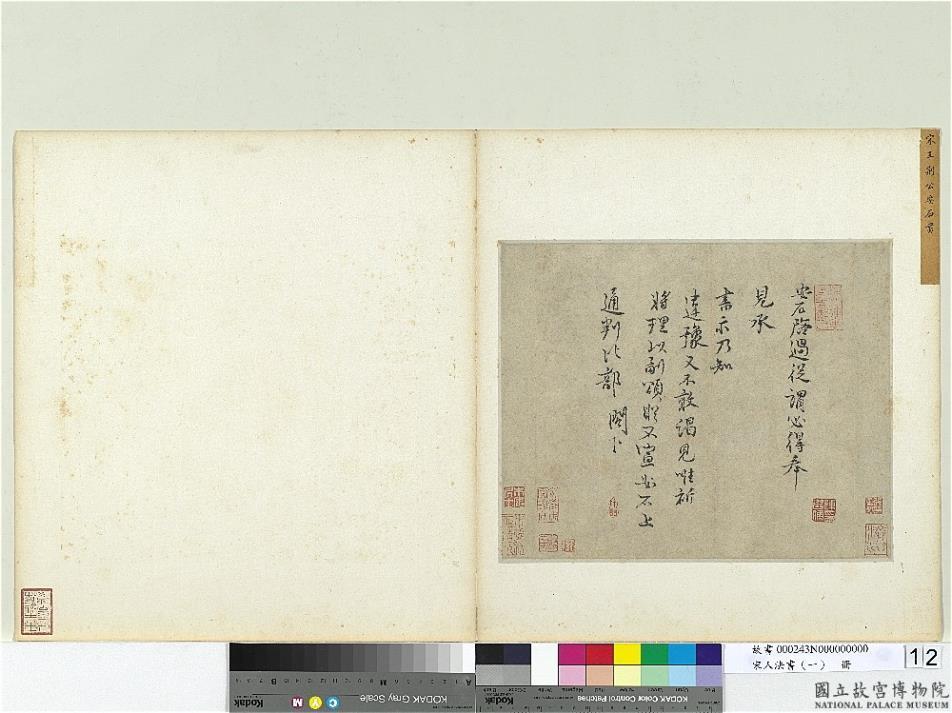 宋王荊公安石書
安石啓過從謂必得奉
見承
書示乃知
違豫又不敢謁見唯祈
將理以副頌盼不宣安石上
通判比部 閤下
KODAK Gray Scale
Kodak
C
Y
M
Kodak
KODAK Color Control Patches
故書000243N000000000
宋人法書(一) 冊
12
國立故宮博物院
NATIONAL PALACE MUSEUM